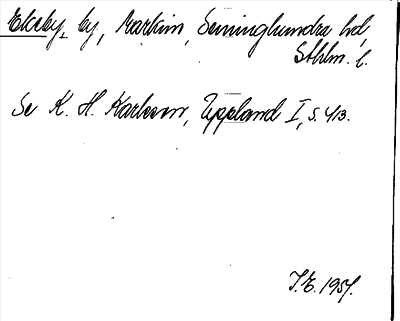 Ekeby, by, Markim, Seminghundra hd,
Sthlm. l.
Se K. H. Karlsson, Uppland I, s. 413.
J.E. 1957.